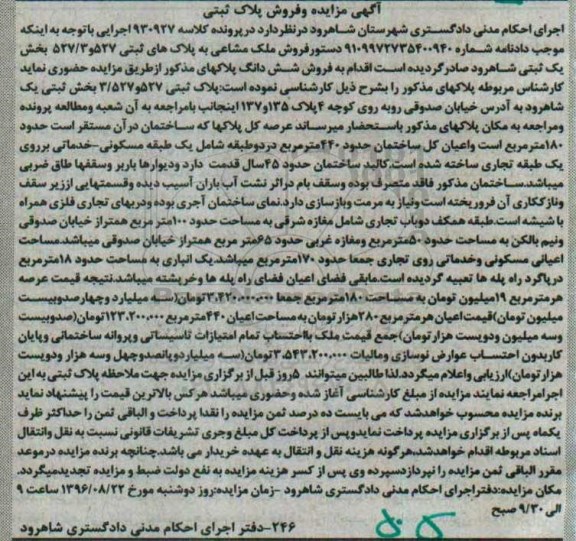 آگهی مزایده وفروش پلاک ثبتی
اجرای احکام مدنی دادگستری شهرستان شاهرود درنظردارد درپرونده کلاسه ۹۳۰۹۲۷ اجرایی باتوجه به اینکه
موجب دادنامه شماره ۹۱۰۹۹۷۲۷۳۵۴۰۰۹۴۰ دستورفروش ملک مشاعی به پلاک های ثبتی ۵۲۷و۵۲۷/۳ بخش
یک ثبتی شاهرود صادرگردیده است اقدام به فروش شش دانگ پلاکهای مذکور ازطریق مزایده حضوری نماید
کارشناس مربوطه پلاکهای مذکور را بشرح ذیل کارشناسی نموده است:پلاک ثبتی ۵۲۷و۳/۵۲۷ بخش ثبتی یک
شاهرود به آدرس خیابان صدوقی روبه روی کوچه ۴پلاک ۱۳۵و۱۳۷ اینجانب بامراجعه به آن شعبه ومطالعه پرونده
ومراجعه به مکان پلاکهای مذکور باستحضار میرساند عرصه کل پلاکها که ساختمان درآن مستقر است حدود
۱۸۰مترمربع است واعیان کل ساختمان حدود ۴۴۰مترمربع دردوطبقه شامل یک طبقه مسکونی-خدماتی برروی
یک طبقه تجاری ساخته شده است.کالبد ساختمان حدود ۴۵سال قدمت دارد ودیوارها باربر وسقفها طاق ضربی
میباشد.ساختمان مذکور فاقد متصرف بوده وسقف بام دراثر نشت آب باران آسیب دیده وقسمتهایی اززیر سقف
ونازککاری آن فروریخته است ونیاز به مرمت وبازسازی دارد.نمای ساختمان آجری بوده ودربهای تجاری فلزی همراه
با شیشه است.طبقه همکف دوباب تجاری شامل مغازه شرقی به مساحت حدود ۱۰۰متر مربع همتراز خیابان صدوقی
ونیم بالکن به مساحت حدود ۵۰مترمربع ومغازه غربی حدود ۶۵متر مربع همتراز خیابان صدوقی میباشد.مساحت
اعیانی مسکونی وخدماتی روی تجاری جمعا حدود ۱۷۰مترمربع میباشد.یک انباری به مساحت حدود ۱۸مترمربع
درپاگرد راه پله ها تعبیه گردیده است.مابقی فضای اعیان فضای راه پله ها وخرپشته میباشد.نتیجه قیمت عرصه
هرمترمربع ۱۹میلیون تومان به مساحت ۱۸۰مترمربع جمعا ۳.۴۲۰.۰۰۰.۰۰۰تومان(سه میلیارد وچهارصدوبیست
میلیون تومان)قیمت اعیان هرمترمربع ۲۸۰هزار تومان به مساحت اعیان ۴۴۰مترمربع ۱۲۳.۲۰۰.۰۰۰تومان(صدوبیست
وسه میلیون ودویست هزارتومان)جمع قیمت ملک بااحتساب تمام امتیازات تاسیساتی وپروانه ساختمانی وپایان
کاربدون احتساب عوارض نوسازی ومالیات ۳.۵۴۳.۲۰۰.۰۰۰تومان(سه میلیاردوپانصدوچهل وسه هزار ودویست
هزارتومان)ارزیابی واعلام میگردد.لذا طالبین میتوانند ۵روز قبل از برگزاری مزایده جهت ملاحظه پلاک ثبتی به این
اجرامراجعه نمایند مزایده از مبلغ کارشناسی آغاز شده وحضوری میباشد هرکس بالاترین قیمت را پیشنهاد نماید
برنده مزایده محسوب خواهدشد که می بایست ده درصد ثمن مزایده را نقدا پرداخت و الباقی ثمن را حداکثر ظرف
یکماه پس از برگزاری مزایده پرداخت نمایدوپس از پرداخت کل مبلغ وجری تشریفات قانونی نسبت به نقل وانتقال
اسناد مربوطه اقدام خواهدشد،هرگونه هزینه نقل و انتقال به عهده خریدار می باشد.چنانچه برنده مزایده درموعد
مقرر الباقی ثمن مزایده را نپردازدسپرده وی پس از کسر هزینه مزایده به نفع دولت ضبط و مزایده تجدیدمیگردد.
مکان مزایده:دفتراجرای احکام مدنی دادگستری شاهرود -زمان مزایده:روز دوشنبه مورخ ۱۳۹۶/۰۸/۲۲ ساعت ۹
الی ۹/۳۰ صبح
۲۴۶-دفتر اجرای احکام مدنی دادگستری شاهرود